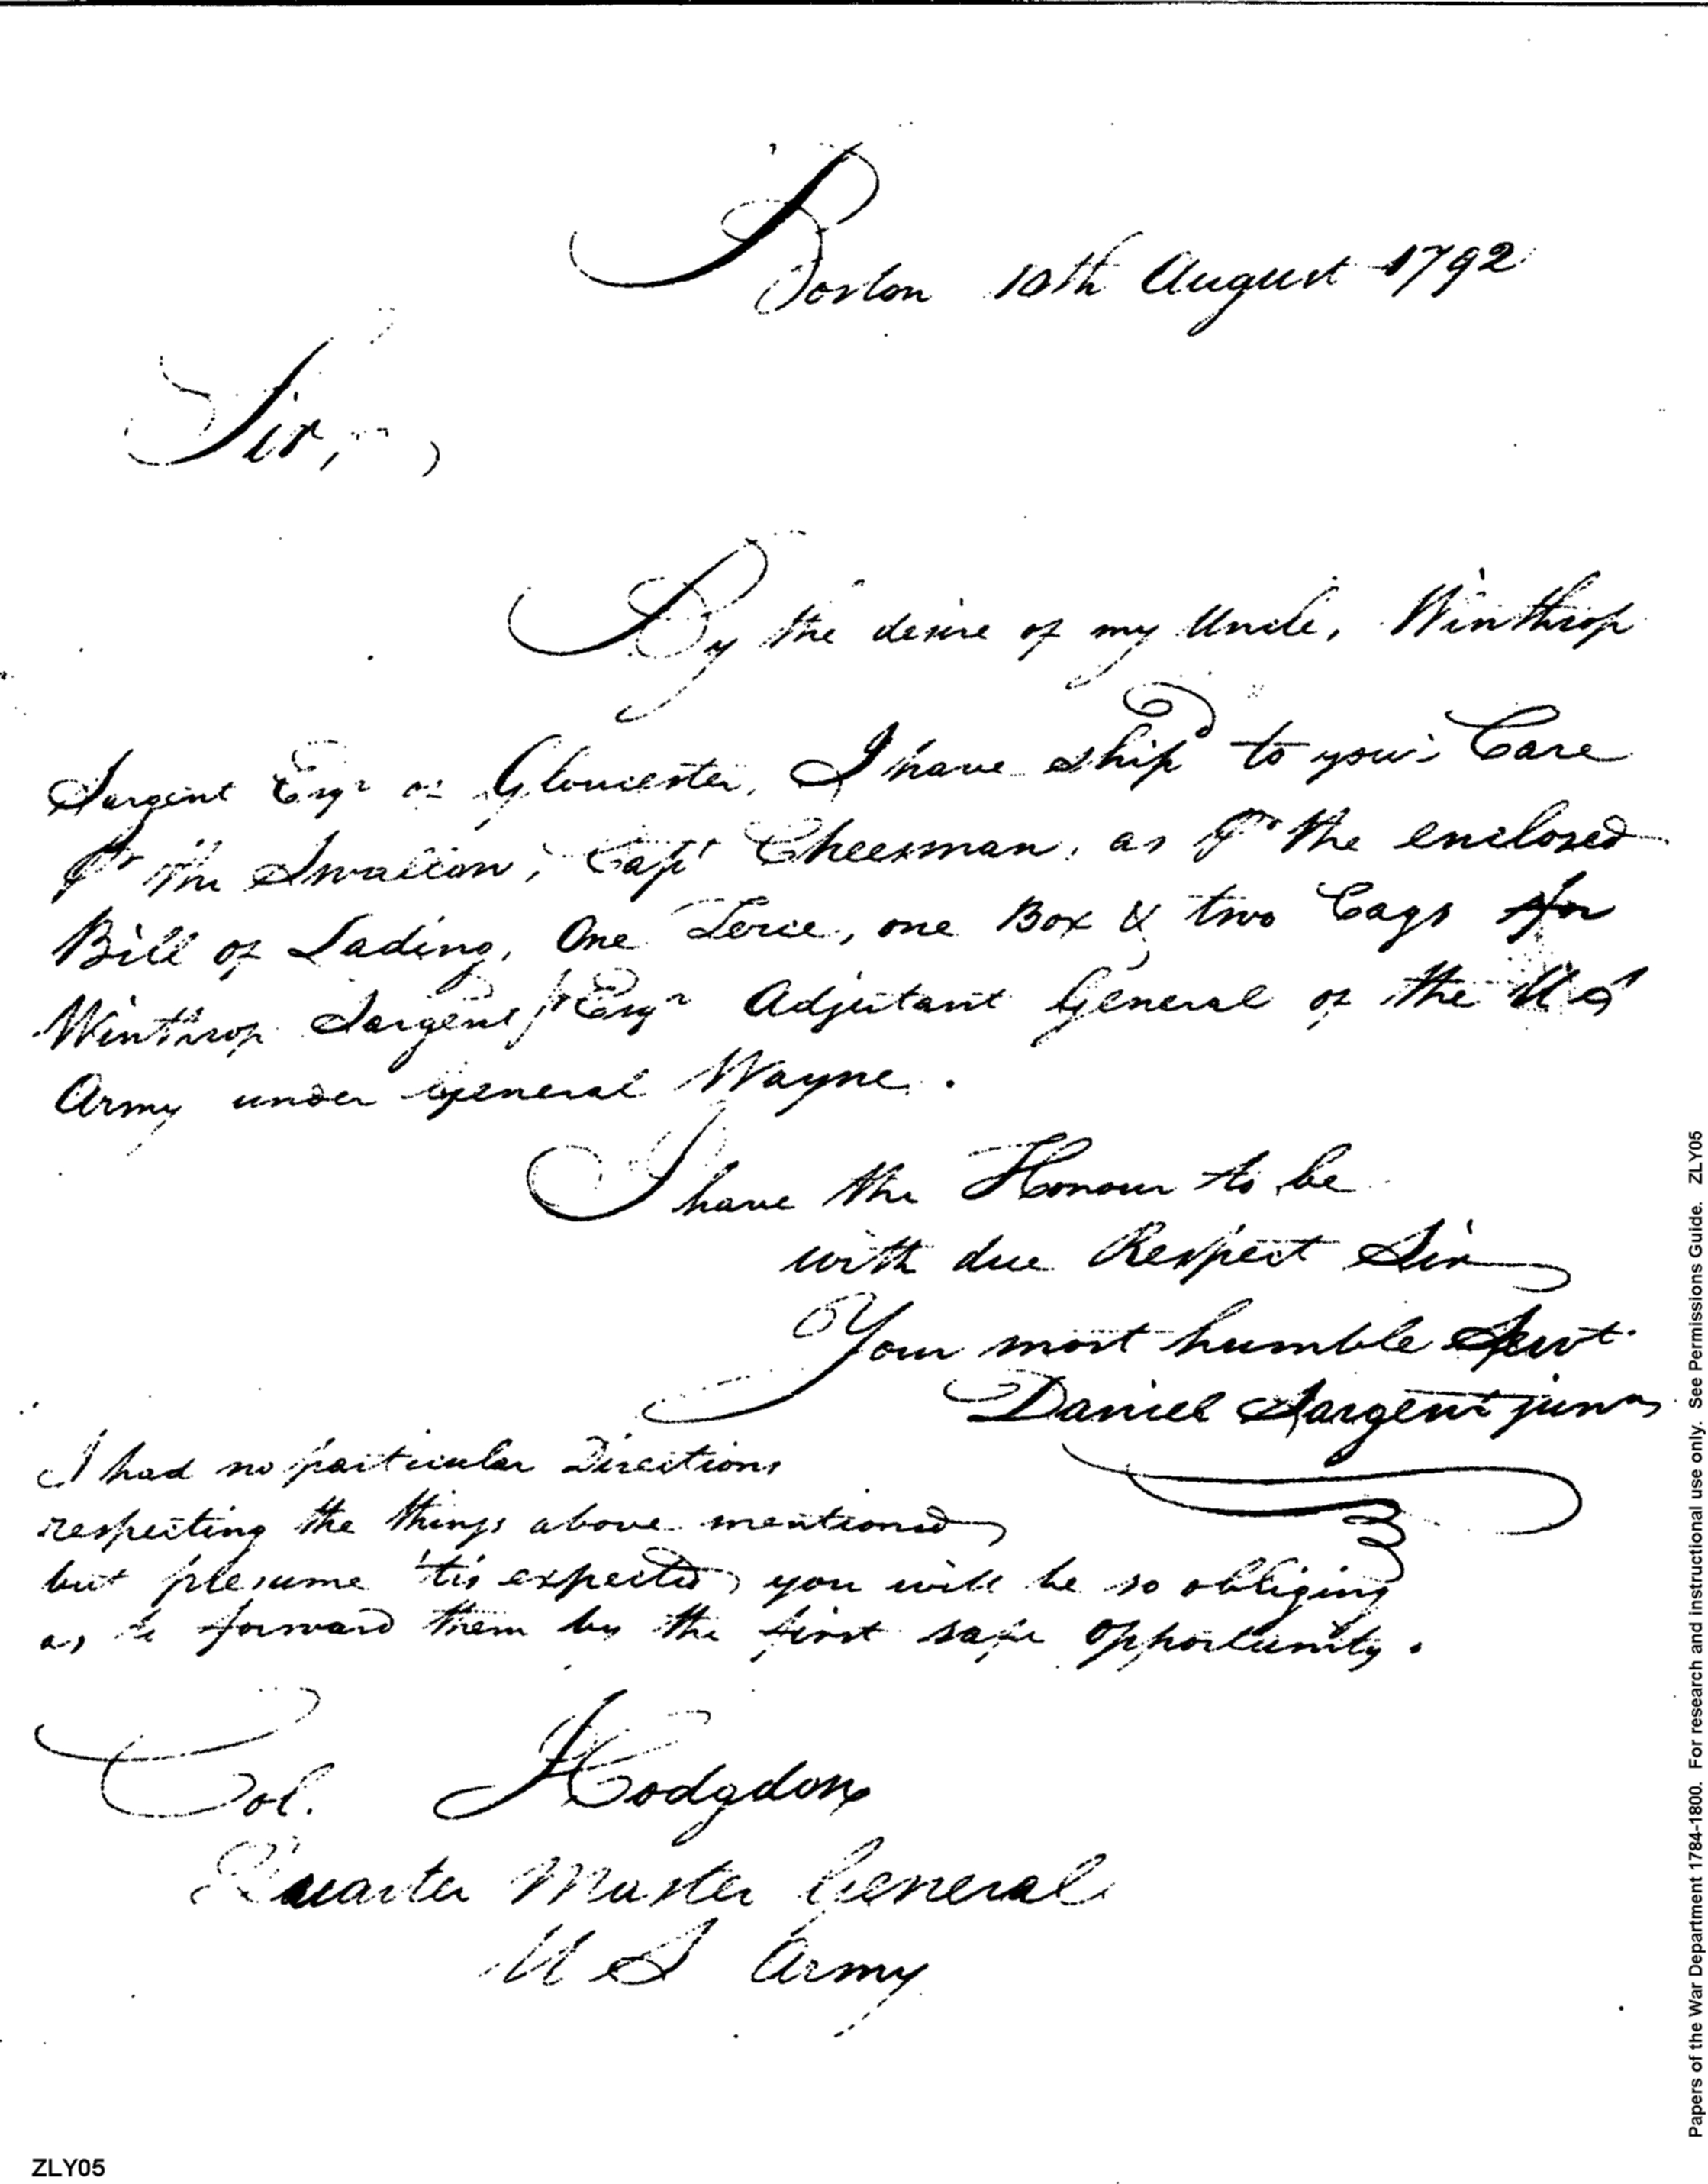 Boston 10th August 1792
Sir,
By the desire of my Uncle, Winthrop
Sargent Esqr of Gloucester, I have ship'd to your Care
Pr the Swallow, Capt Cheesman, as Pr the enclosed
Bill of Lading, One Terce, one Box & two Cags for
Winthrop Sargent Esqr Adjutant General of the U S
Army under General Wayne.
I have the Honour to be
with due Respect Sir
Your most humble Servt.
Daniel Sargent junr
I had no particular Directions
respecting the things above mentioned
but presume 'tis expected you will be so obliging
as to forward them by the first safe opportunity.
Col. Hodgdon
Quarter Master General
U S Army
ZLY05
Papers of the War Department 1784-1800. For research and instructional use only. See Permissions Guide. ZLY05